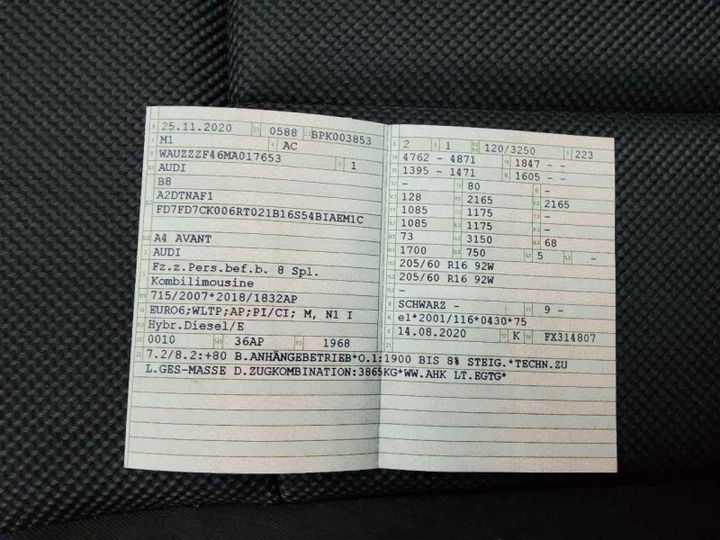 25.11.2020 0588 BPK003853
M1 AC
WAUZZZF46MA017653 1
AUDI
B8
A2DTNAF1
FD7FD7CK006RT021B16S54BIAEM1C
A4 AVANT
AUDI
Fz.z.Pers.bef.b. 8 Spl.
Kombilimousine
715/2007*2018/1832AP
EURO6;WLTP;AP;PI/CI; M, N1 I
Hybr.Diesel/E
0010 36AP 1968
7.2/8.2:+80 B.ANHÄNGEBETRIEB*O.1:1900 BIS 8% STEIG.*TECHN.ZU
L.GES-MASSE D.ZUGKOMBINATION:3865KG*WW.AHK LT.EGTG*
2 1 120/3250 223
4762 - 4871 1847 - -
1395 - 1471 1605 - -
- 80 -
128 2165 2165
1085 1175 -
1085 1175 -
73 3150 68
1700 750 5 -
205/60 R16 92W
205/60 R16 92W
-
-
SCHWARZ - 9 -
e1*2001/116*0430*75
14.08.2020 K FX314807